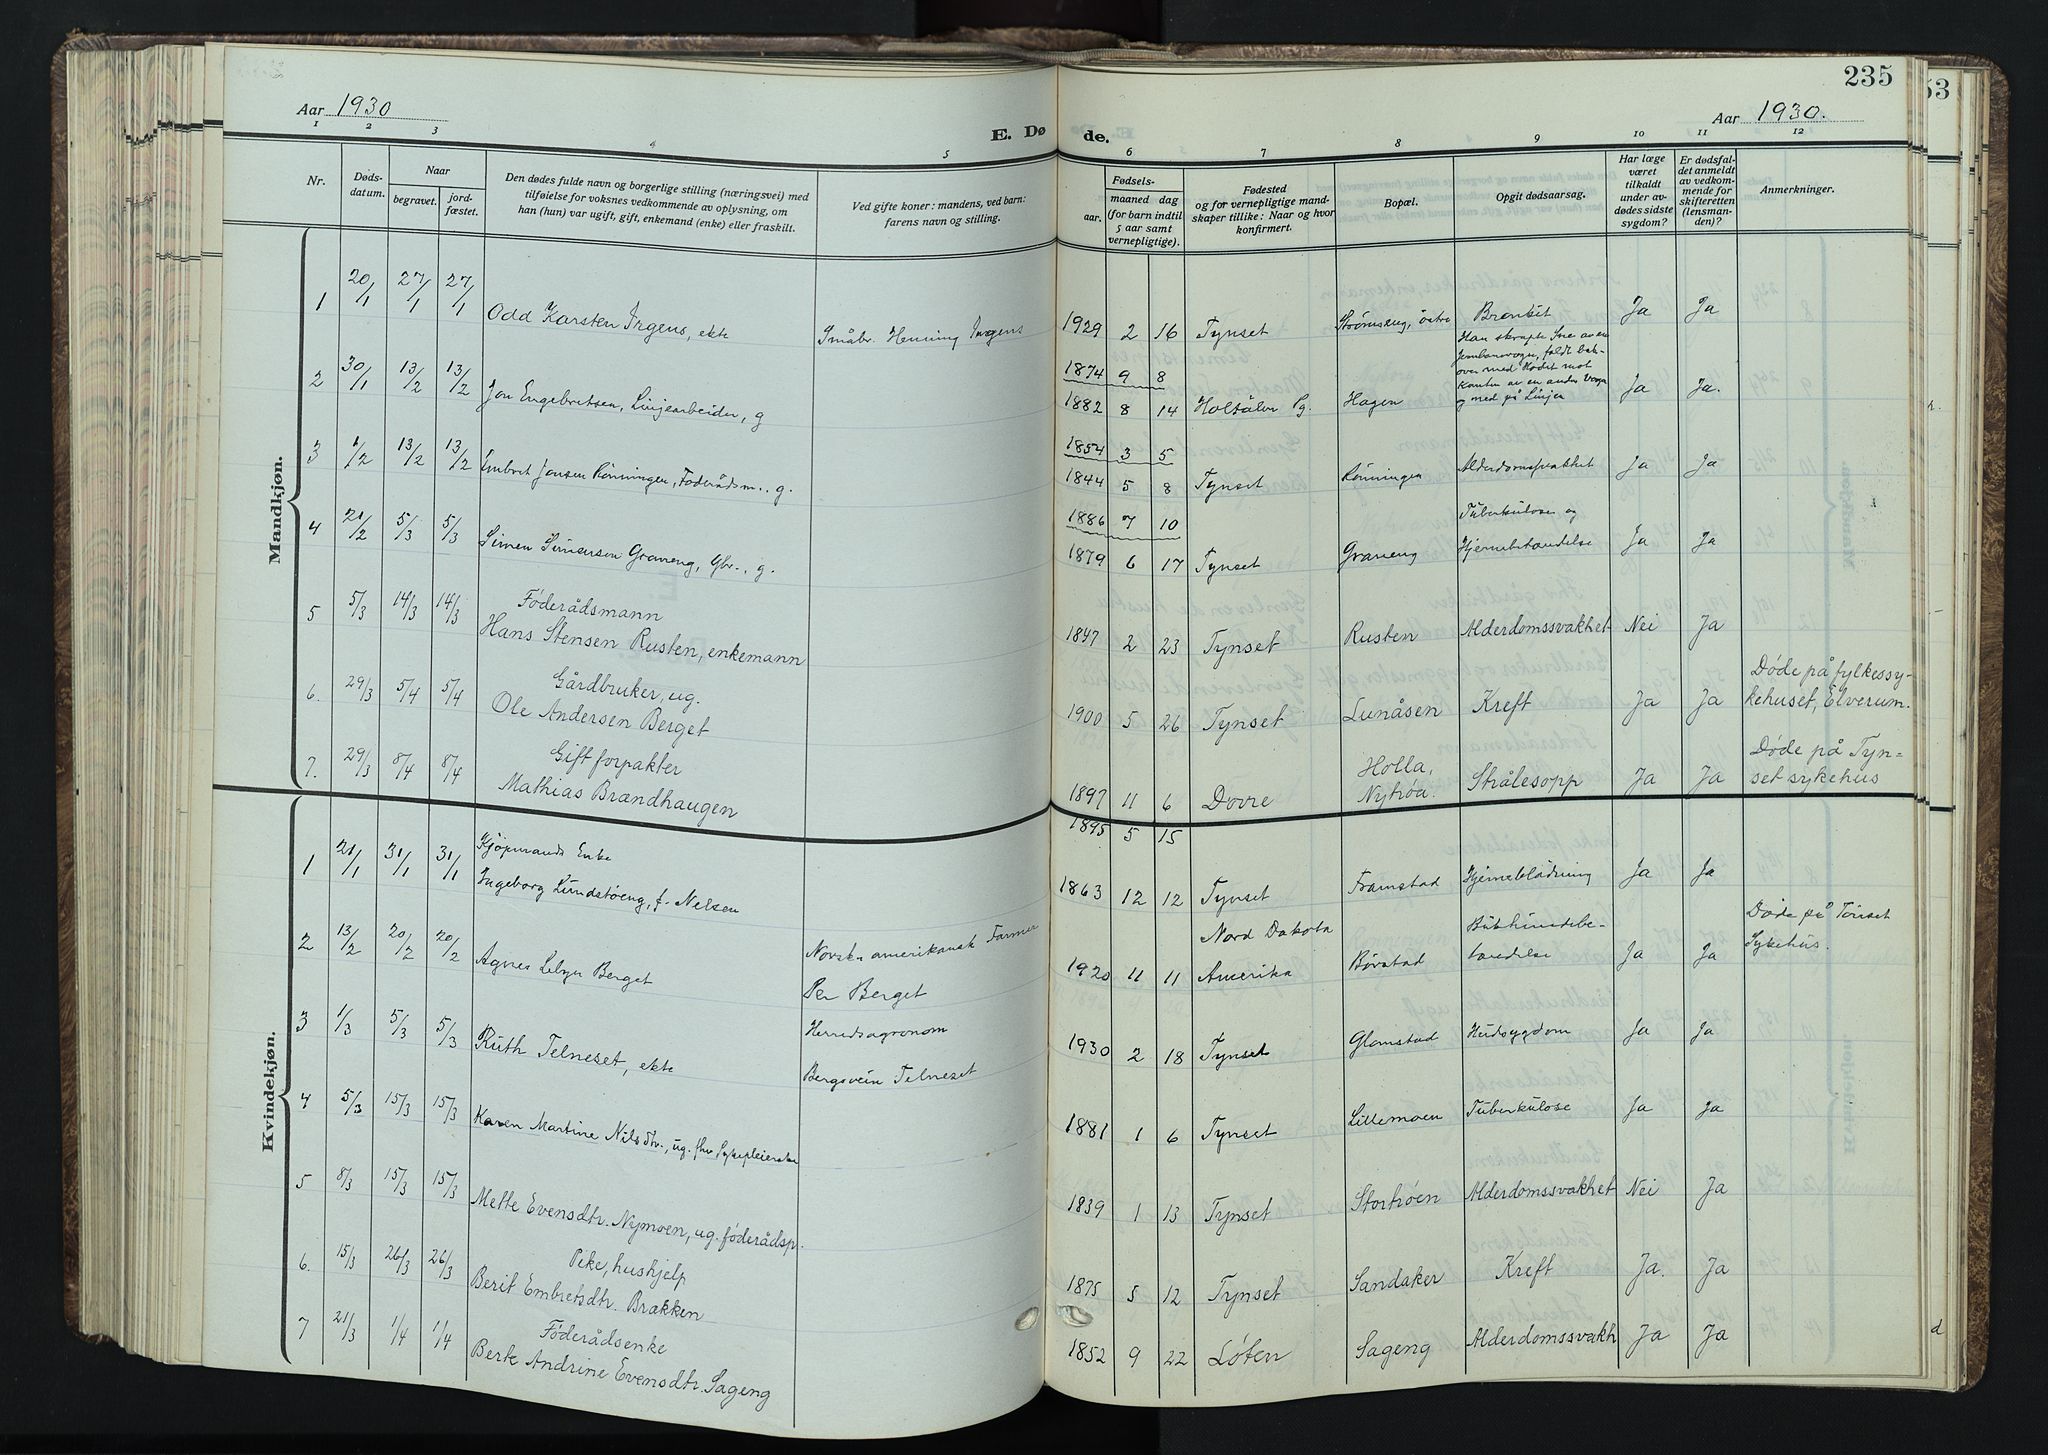 235
53
Aar 1930
E. Dø
de.
Aar 1930.
1 2 3 4 5 6 7 8 9 10 11 12
Nr.
Døds-
datum.
Naar
begravet.
jord-
fæstet.
Den dødes fulde navn og borgerlige stilling (næringsvei) med
tilføielse for voksnes vedkommende av oplysning, om
han (hun) var ugift, gift, enkemand (enke) eller fraskilt.
Ved gifte koner: mandens, ved barn:
farens navn og stilling.
Fødsels-
aar.
maaned dag
(for barn indtil
5 aar samt
vernepligtige).
Fødested
og for vernepligtige mand-
skaper tillike: Naar og hvor
konfirmert.
Bopæl.
Opgit dødsaarsag.
Har læge
været
tilkaldt
under av-
dødes sidste
sygdom?
Er dødsfal-
det anmeldt
av vedkom-
mende for
skifteretten
(lensman-
den)?
Anmerkninger.
Mandkjøn.
1 20/1 27/1 27/1 Odd Karsten Irgens, ekte Småbr. Henning Irgens 1929 2 16 Tynset Strømseng, östre Bronkit Ja Ja
2 30/1 13/2 13/2 Jon Engebretsen, Linjearbeider, g 1874 9 8
1882 8 14 Holtålen Pg. Hagen Han skrapte Sne av en
Jernbanevogn, faldt bak-
over med Hodet mot
Kanten av en anden Vogn
og ned på Linjen Ja Ja.
3 1/2 13/2 13/2 Embret Jonsen Rønningen, Føderådsm., g. 1854 3 5
1844 5 8 Tynset Rønningen Alderdomssvakhet Ja Ja
4 21/2 5/3 5/3 Simen Simensen Graneng, Gbr., g. 1886 7 10
1879 6 17 Tynset Graneng Tuberkulose og
Hjernebetændelse Ja Ja
5 5/3 14/3 14/3 Föderådsmann
Hans Stensen Rusten, enkemann 1847 2 23 Tynset Rusten Alderdomssvakhet Nei Ja
6. 29/3 5/4 5/4 Gårdbruker, ug.
Ole Andersen Berget 1900 5 26 Tynset Lunåsen Kreft Ja Ja Døde på fylkessy-
kehuset, Elverum.
7. 29/3 8/4 8/4 Gift forpakter
Mathias Brændhaugen 1897 11 6 Dovre Holla,
Nytrøa. Strålesopp Ja Ja Døde på Tyn-
set sykehus
1895 5 15
Kvindekjøn.
1 21/1 31/1 31/1 Kjøpmands Enke
Ingeborg Lundstøeng, f. Nelsen 1863 12 12 Tynset Framstad Hjerneblødning Ja Ja
2 13/2 20/2 20/2 Agnes Berget Norsk-amerikansk Farmer
Per Berget 1920 11 11 Nord Dakota
Amerika Børstad Bukhindebe-
tændelse Ja Ja Døde på Tönset
Sykehus.
3 1/3 5/3 5/3 Ruth Telneset, ekte Herredsagronom
Bergsvein Telneset 1930 2 18 Tynset Glomstad Hudsygdom Ja Ja
4 5/3 15/3 15/3 Karen Martine Nilsdtr., ug. fhv Sykepleierske 1881 1 6 Tynset Lillemoen Tuberkulose Ja Ja
5 8/3 15/3 15/3 Mette Evensdtr. Nymoen, ug. føderådsp. 1839 1 13 Tynset Stortrøen Alderdomssvakhet Nei Ja
6. 15/3 26/3 26/3 Pike, hushjelp
Berit Embretsdtr. Brækken 1875 5 12 Tynset Sandaker Kreft Ja. Ja
7 21/3 1/4 1/4 Föderådsenke
Berte Andrine Evensdtr. Sageng 1852 9 22 Løten Sageng Alderdomssvakh Ja Ja